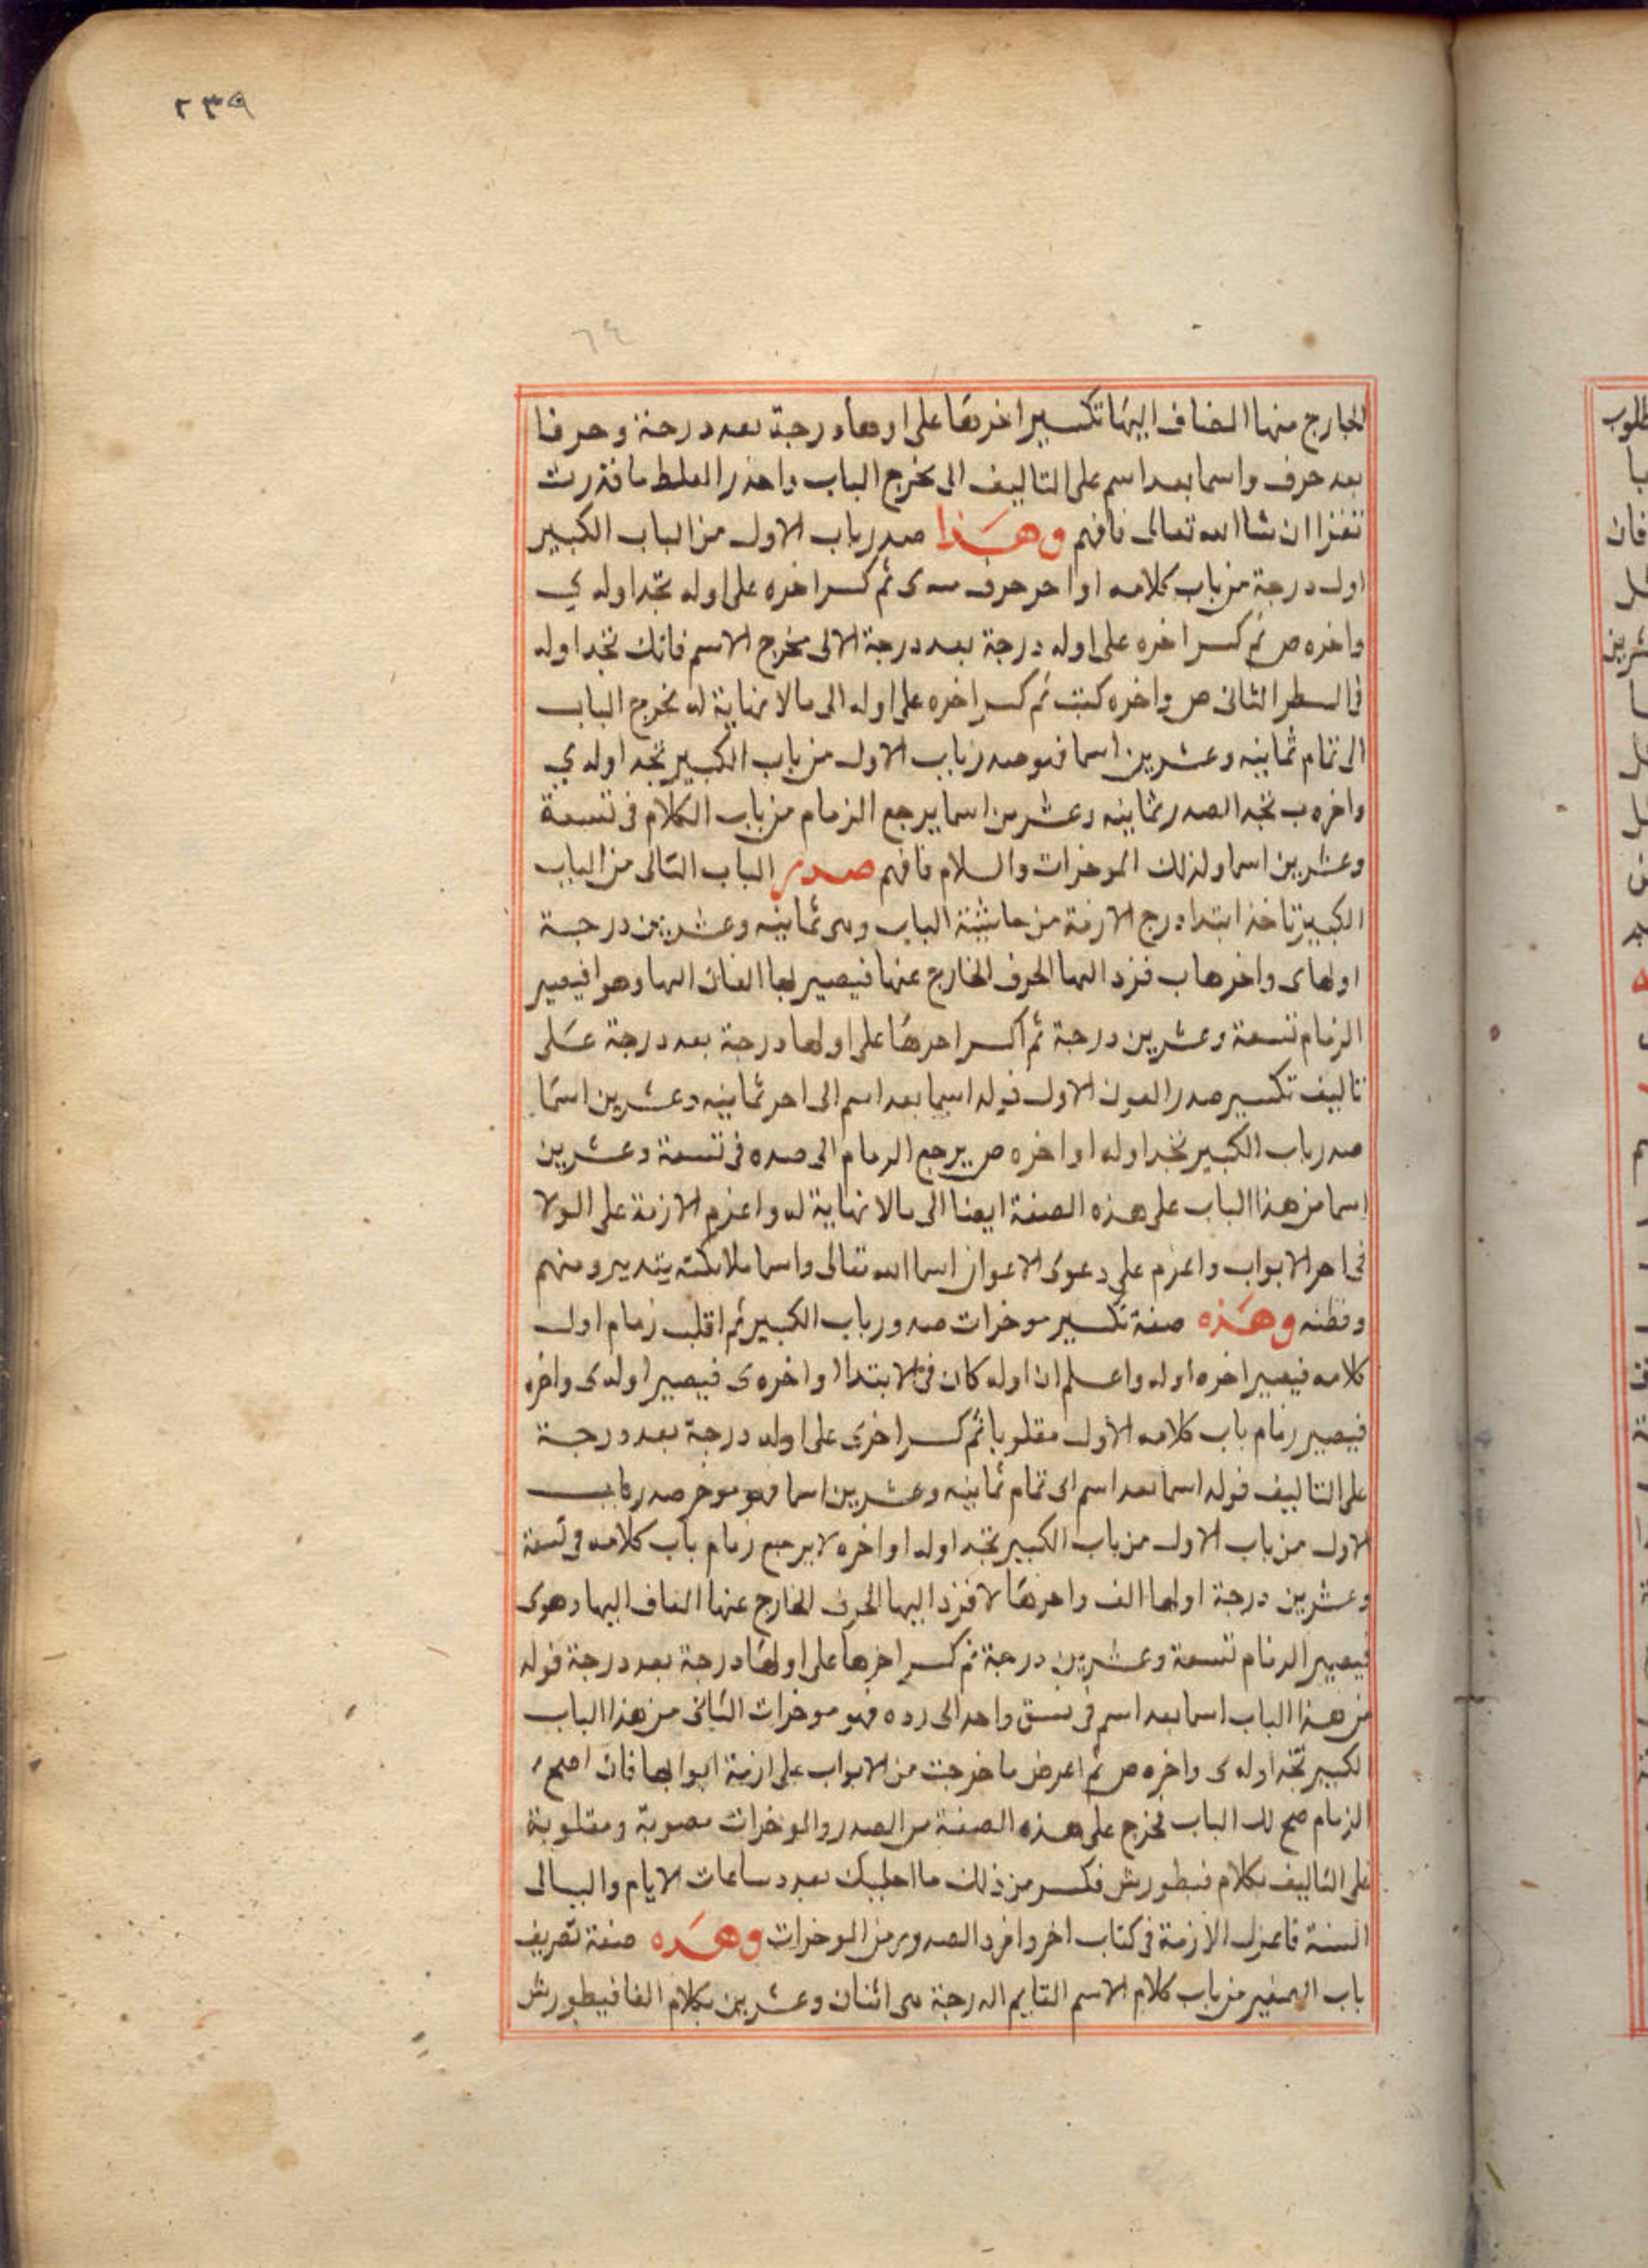 ٢٣٩
٦٤
الخارج منها المضاف اليها تكسير اخرها على اولها درجة بعد درجة وحرفا
بعد حرف واسما بعد اسم على التاليف الى مخرج الباب واحذر الغلط ما قدرت
تفز ان شا الله تعالى فافهم وهذا صدر باب الاول من الباب الكبير
اول درجة من باب كلامه ا واخر حرف ى ثم كسر اخره على اوله تجد اوله ي
واخره ص ثم كسر اخره على اوله درجة بعد درجة الالى مخرج الاسم فانك تجد اوله
فى السطر الثانى ص واخره كنت ثم كسر اخره على اوله الى مالا نهاية له مخرج الباب
الى تمام ثمانيه وعشرين اسما فهو صدر باب الاول من باب الكبير تجد اوله ي
واخره ب تجد الصدر ثمانيه وعشرين اسما يرجع الزمام من باب الكلام فى تسعة
وعشرين اسما ولذلك الموخرات والسلام فافهم صدر الباب الثانى من الباب
الكبير تاخذ ابتدا درج الازمة من حاشية الباب وهى ثمانيه وعشرين درجة
اولها ى واخرها ب فزد اليها الحرف الخارج عنها فيصير لها الفان اليها وهو ا فيصير
الزمام تسعة وعشرين درجة ثم اكسر اخرها على اولها درجة بعد درجة على
تاليف تكسير صدر العون الاول فوله اسما بعد اسم الى اخر ثمانيه وعشرين اسما
صدر باب الكبير تجد اوله ا واخره ص يرجع الزمام الى صده فى تسعة وعشرين
اسما من هذا الباب على هذه الصفة ايضا الى مالا نهاية له واعزم الازمة على الولا
فى اخر الابواب واعزم على دعوى الاعوان اسما الله تعالى واسما ملائكته يتدبرو منهم
وفظنه وهذه صفة تكسير موخرات صدور باب الكبير ثم اقلب زمام اول
كلامه فيصير اخره اوله واعلم ان اوله كان فى الابتدا ا واخره ى فيصير اوله ى واخره
فيصير زمام باب كلامه الاول مقلوبا ثم كسر اخرى على اوله درجة بعد درجة
على التاليف فوله اسما بعد اسم الى تمام ثمانيه وعشرين اسما فهو موخر صدر باب
الاول من باب الاول من باب الكبير تجد اوله ا واخره لا يرجع زمام باب كلامه فى تسعة
وعشرين درجة اولها الف واخرها لا فزد اليها الحرف الخارج عنها المضاف اليها وهو ى
فيصير الزمام تسعة وعشرين درجة ثم كسر اخرها على اولها درجة بعد درجة فوله
من هذا الباب اسما بعد اسم فى نسق واحد الى رده فهو موخرات الثانى من هذا الباب
الكبير تجد اوله ى واخره ص ثم اعرض ما خرجت من الابواب على ازمة ابوابها فان اصح
الزمام صح لك الباب مخرج على هذه الصفة من الصدر والموخرات مصوبة ومقلوبة
على التاليف بكلام فيطورش فكسر من ذلك ما احببك بعدد ساعات الايام والليالى
السنة فاعزل الازمة فى كتاب اخر وافرد الصدور من الموخرات وهذه صفة تصريف
باب الصغير من باب كلام الاسم القايم الدرجة هى اثنان وعشرين بكلام الفافيطورش